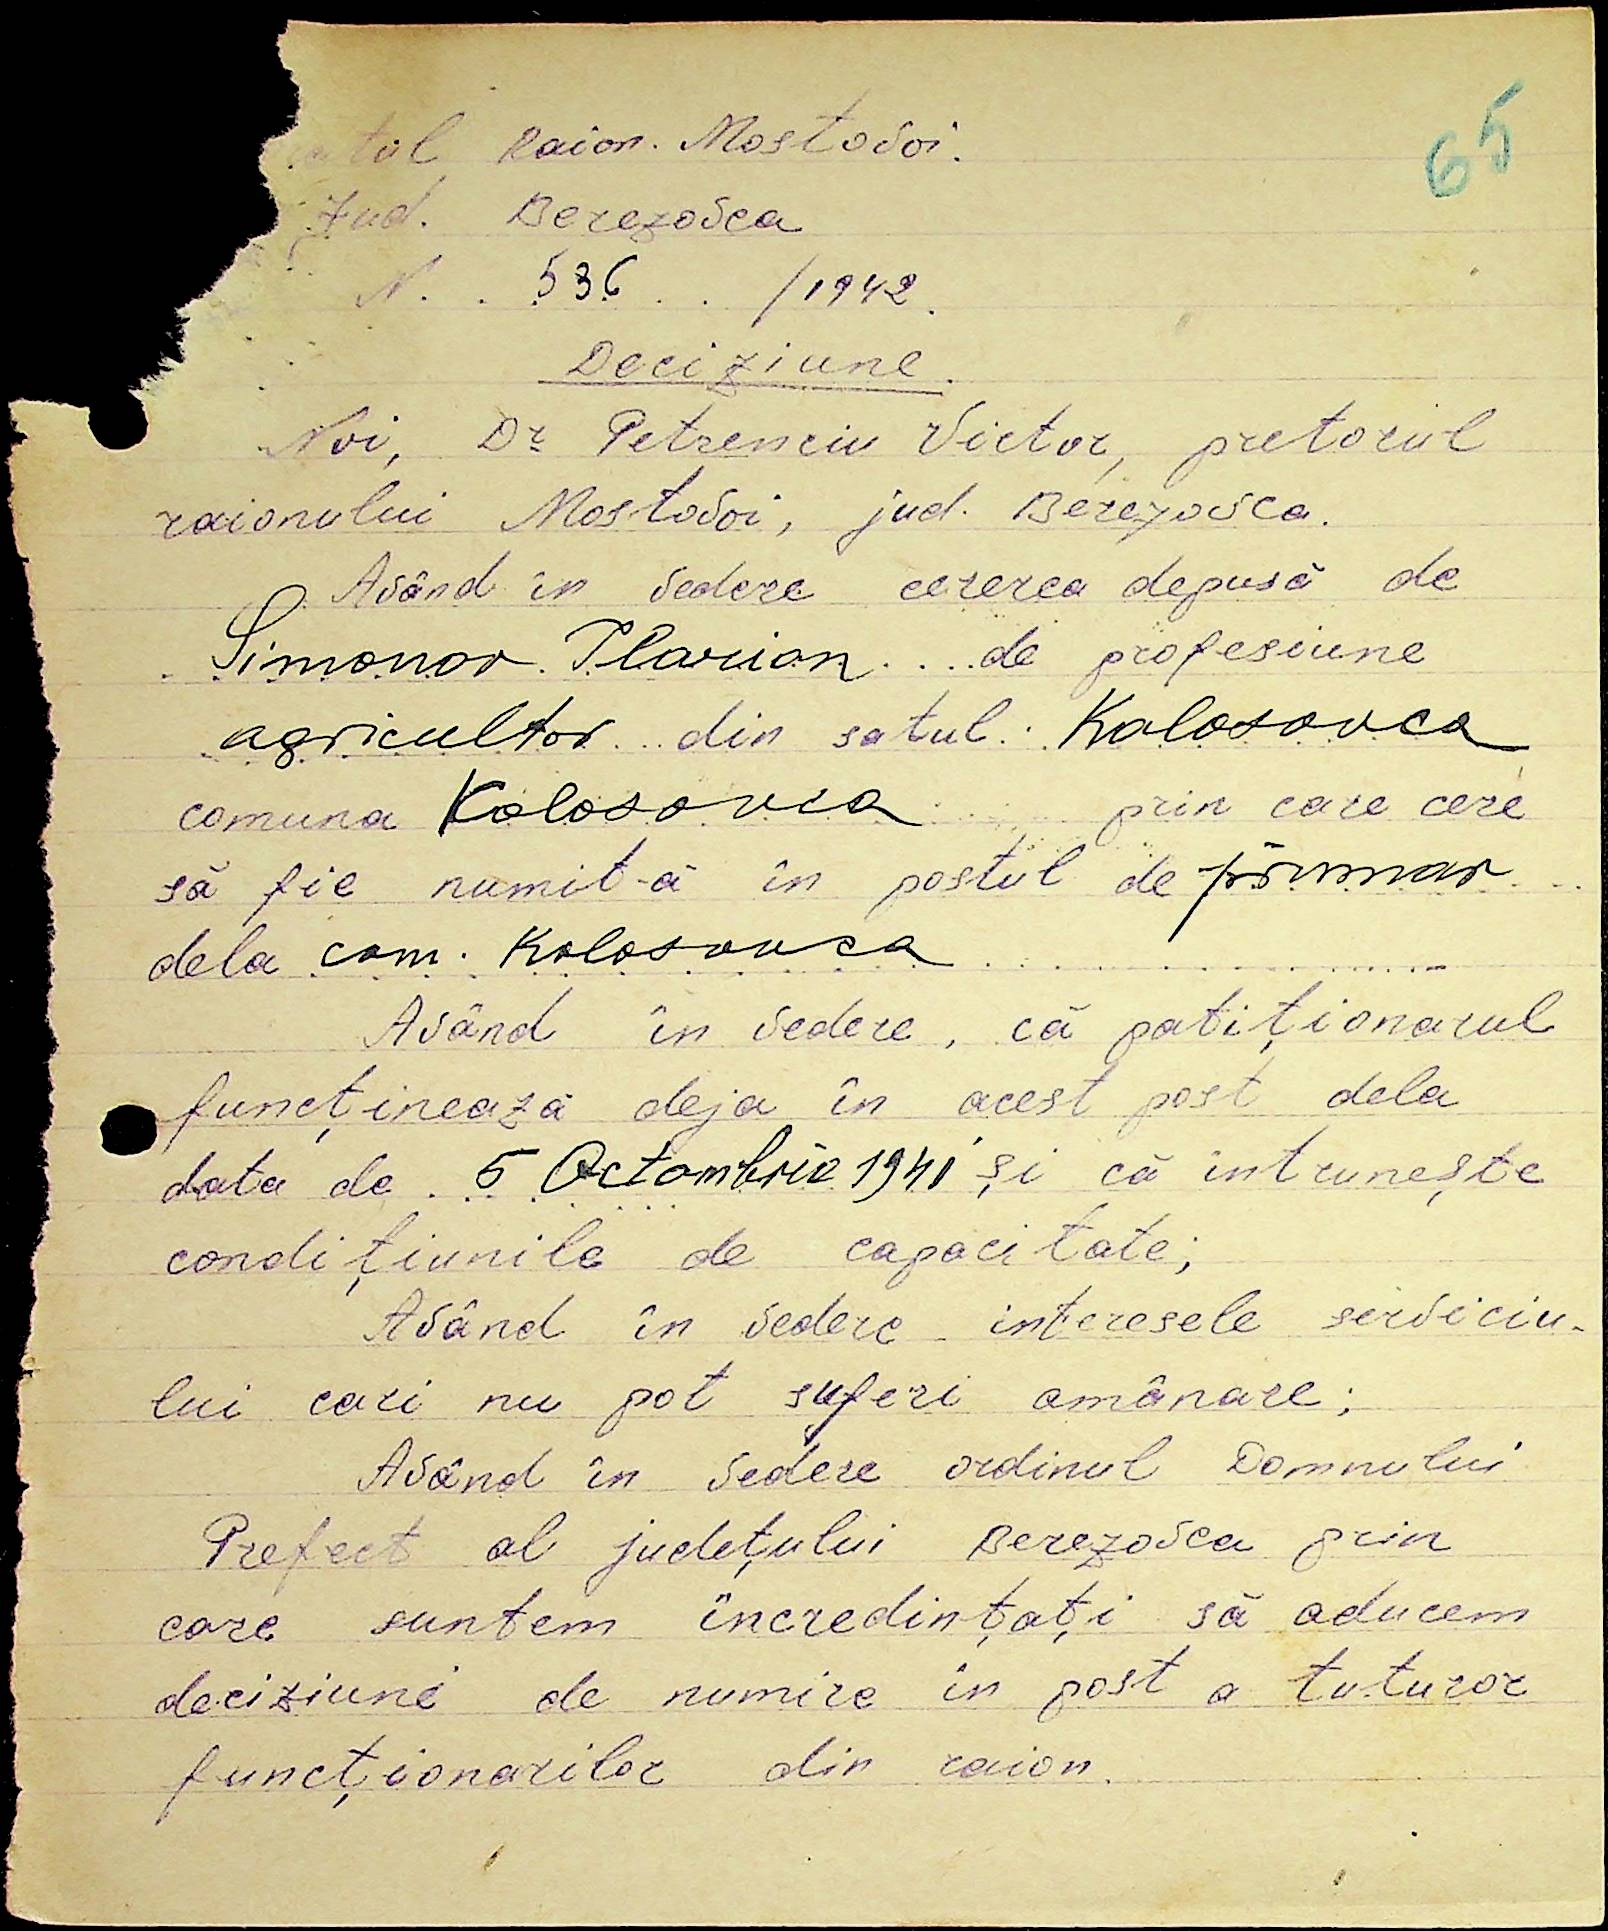 65
Raion. Mostovoi.
Jud. Berezovca
N. . 536 . . /1942.
Deciziune.
Noi, Dr Petrenciu Victor, pretorul
raionului Mostovoi, jud. Berezovca.
Având în vedere cererea depusă de
Simonov Ilarion . . . . de profesiune
agricultor . . . din satul . Kolosovca
comuna Kolosovca prin care cere
să fie numit-ă în postul de primar
dela com. Kolosovca
Având în vedere, că patiționarul
funcținează deja în acest post dela
data de . 5 Octombrie 1941 și că întrunește
condițiunile de capacitate;
Având în vedere interesele serviciu-
lui cari nu pot suferi amânare;
Având în vedere ordinul Domnului
Prefect al județului Berezovca prin
care suntem încredințați să aducem
deciziuni de numire în post a tuturor
funcționarilor din raion.